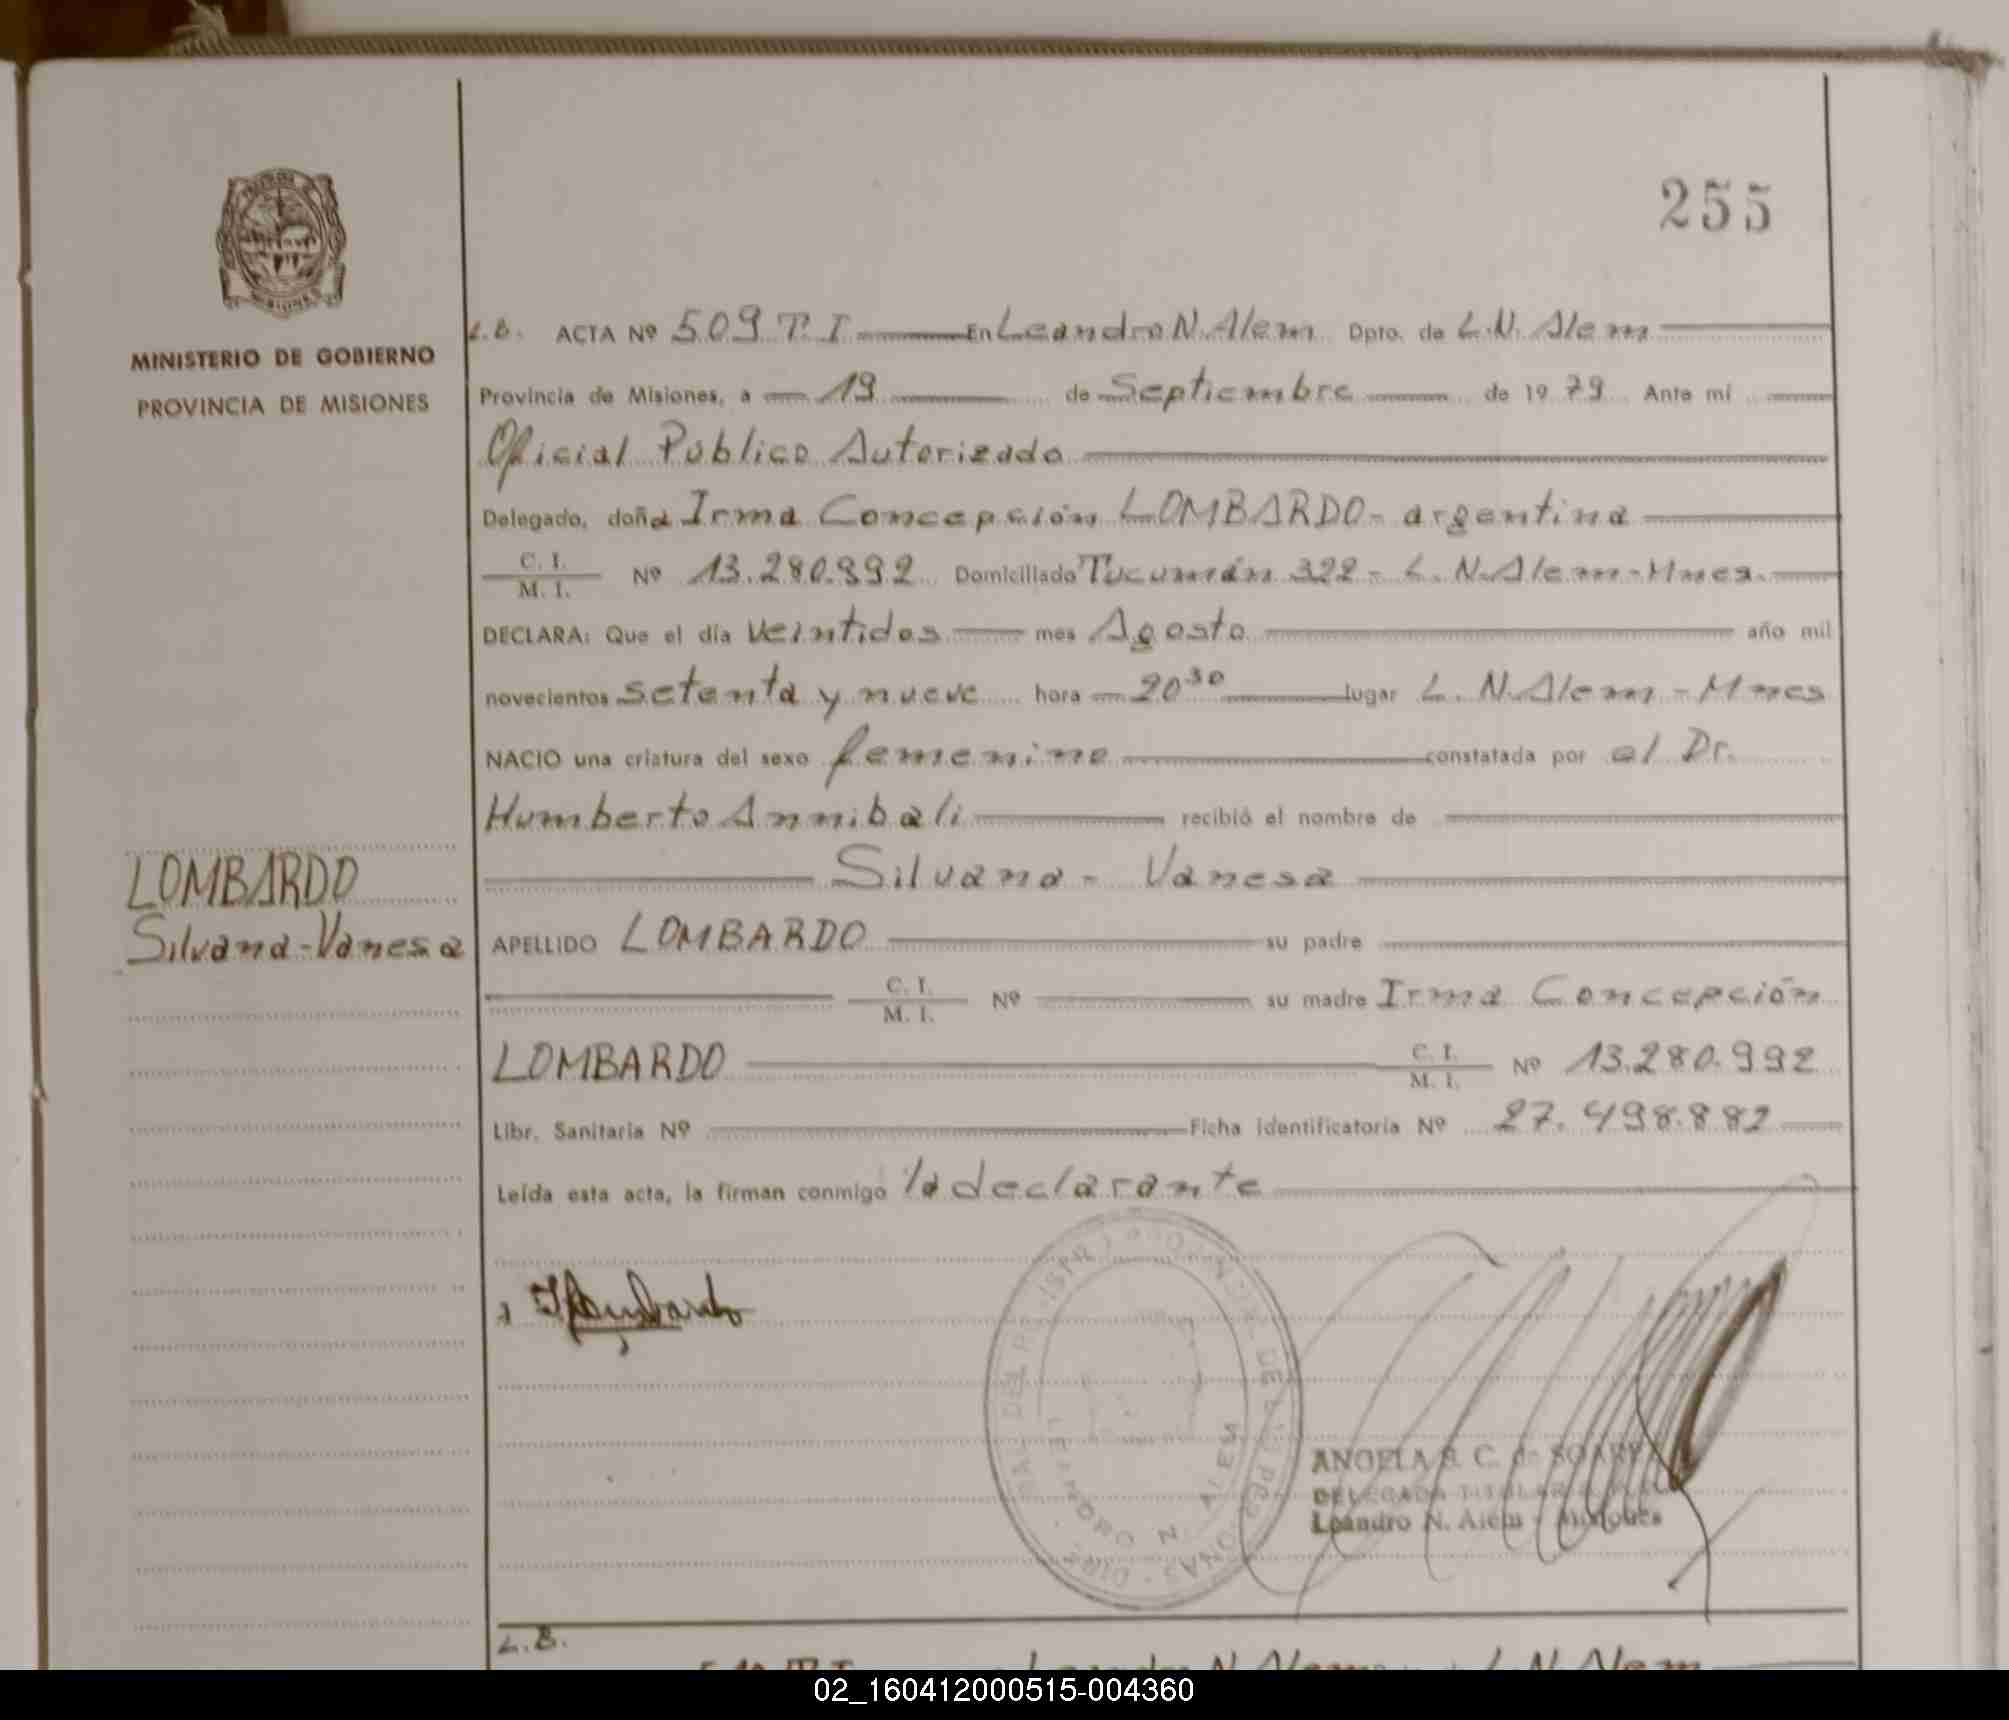 255
MINISTERIO DE GOBIERNO
PROVINCIA DE MISIONES
L.B. ACTA Nº 509 T. I En Leandro N. Alem Dpto. de L.N. Alem
Provincia de Misiones, a 19 de Septiembre de 1979 Ante mí
Oficial Público Autorizado
Delegado, doña Irma Concepción LOMBARDO- argentina
C. I.
M. I. Nº 13.280.992 Domiciliado Tucumán 322- L. N. Alem-Mnes.
DECLARA: Que el día veintidos mes Agosto año mil
novecientos setenta y nueve hora 20³⁰ lugar L. N. Alem - Mnes
NACIO una criatura del sexo femenino constatada por el Dr.
Humberto Annibali recibió el nombre de
Silvana - Vanesa
LOMBARDO
Silvana-Vanesa
APELLIDO LOMBARDO su padre
C. I.
M. I. Nº su madre Irma Concepción
LOMBARDO C. I.
M. I. Nº 13.280.992
Libr. Sanitaria Nº Ficha identificatoria Nº 27.498.882
Leída esta acta, la firman conmigo la declarante
Lombardo
LEANDRO N. ALEM
ANGELA S. C. de SOAREZ
DELEGADA TITULAR
Leandro N. Alem - Misiones
L.B.
02_160412000515-004360